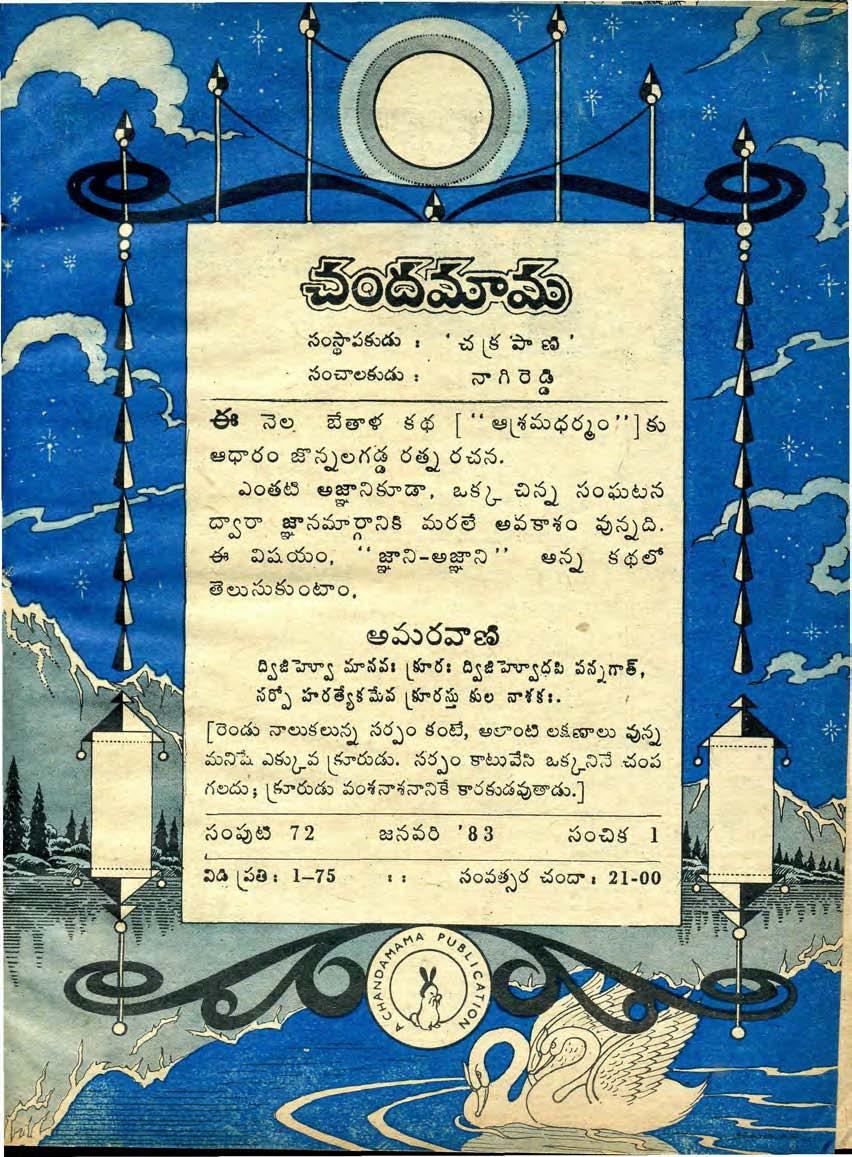 చందమామ
సంస్థాపకుడు : 'చక్రపాణి'
సంచాలకుడు : నాగిరెడ్డి
ఈ నెల బేతాళ కథ [“ఆశ్రమధర్మం”]కు
ఆధారం జొన్నలగడ్డ రత్న రచన.
ఎంతటి అజ్ఞానికూడా, ఒక్క చిన్న సంఘటన
ద్వారా జ్ఞానమార్గానికి మరలే అవకాశం వున్నది.
ఈ విషయం, “జ్ఞాని-అజ్ఞాని” అన్న కథలో
తెలుసుకుంటాం.
అమరవాణి
ద్విజిహ్వో మానవః క్రూరః ద్విజిహ్వాదపి పన్నగాత్,
సర్పో హరత్యేకమేవ క్రూరస్తు కుల నాశకః.
[రెండు నాలుకలున్న సర్పం కంటే, అలాంటి లక్షణాలు వున్న
మనిషి ఎక్కువ క్రూరుడు. సర్పం కాటువేసి ఒక్కనినే చంప
గలదు; క్రూరుడు వంశనాశనానికే కారకుడవుతాడు.]
సంపుటి 72 జనవరి '83 సంచిక 1
విడి ప్రతి : 1-75 : : సంవత్సర చందా : 21-00
A CHANDAMAMA PUBLICATION